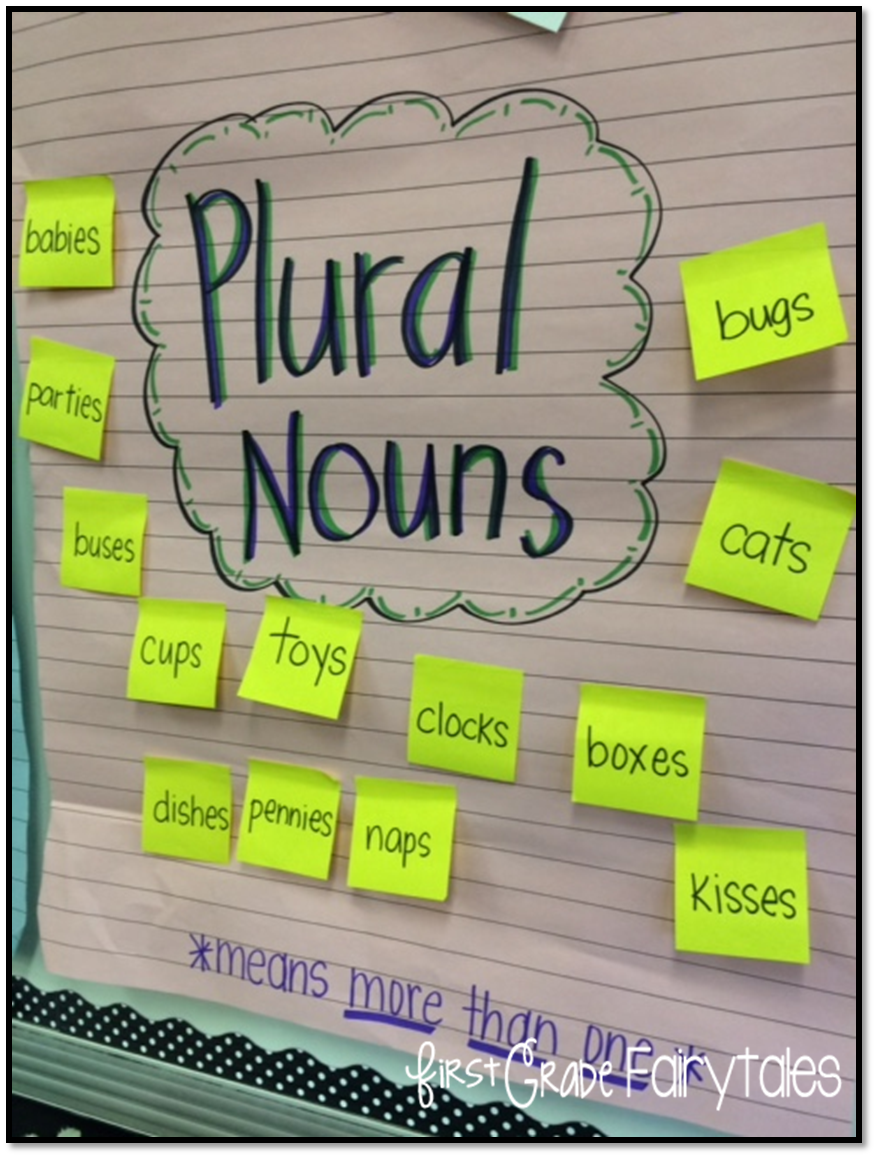 Plural
Nouns
babies
parties
buses
bugs
cats
cups
toys
clocks
boxes
dishes
pennies
naps
kisses
*means more than one*
First Grade Fairytales